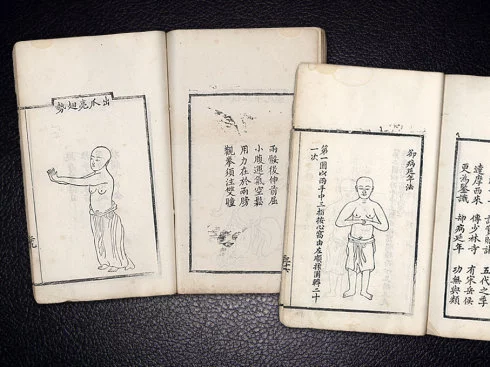 出爪亮翅勢
兩骽後伸前屈
小腹運氣空鬆
用力在於兩膀
觀拳須注雙瞳
五代之季
達摩西來 傳少林寺 有宋岳侯
更為鑒識 却病延年 功無與類
却病延年法
第一圖以兩手中三指按心窩由左順揉團轉二十
一次